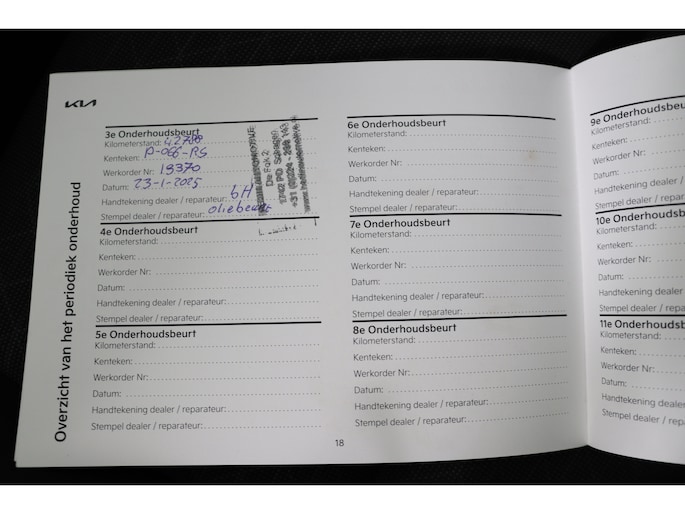 KIA
Overzicht van het periodiek onderhoud
3e Onderhoudsbeurt
Kilometerstand: 42788
Kenteken: P-066-RS
Werkorder Nr: 18370
Datum: 23-1-2025
Handtekening dealer / reparateur: bH
Stempel dealer / reparateur: oliebeurt
De Fok 2
1742 PD Schagen
4e Onderhoudsbeurt
Kilometerstand:
Kenteken:
Werkorder Nr:
Datum:
Handtekening dealer / reparateur:
Stempel dealer / reparateur:
5e Onderhoudsbeurt
Kilometerstand:
Kenteken:
Werkorder Nr:
Datum:
Handtekening dealer / reparateur:
Stempel dealer / reparateur:
6e Onderhoudsbeurt
Kilometerstand:
Kenteken:
Werkorder Nr:
Datum:
Handtekening dealer / reparateur:
Stempel dealer / reparateur:
7e Onderhoudsbeurt
Kilometerstand:
Kenteken:
Werkorder Nr:
Datum:
Handtekening dealer / reparateur:
Stempel dealer / reparateur:
8e Onderhoudsbeurt
Kilometerstand:
Kenteken:
Werkorder Nr:
Datum:
Handtekening dealer / reparateur:
Stempel dealer / reparateur:
18
9e Onderhoudsbeu
Kilometerstand:
Kenteken:
Werkorder Nr:
Datum:
Handtekening dealer
Stempel dealer / repara
10e Onderhoudsb
Kilometerstand:
Kenteken:
Werkorder Nr:
Datum:
Handtekening dealer
Stempel dealer / repa
11e Onderhoudsb
Kilometerstand:
Kenteken:
Werkorder Nr:
Datum:
Handtekening deale
Stempel dealer / rep